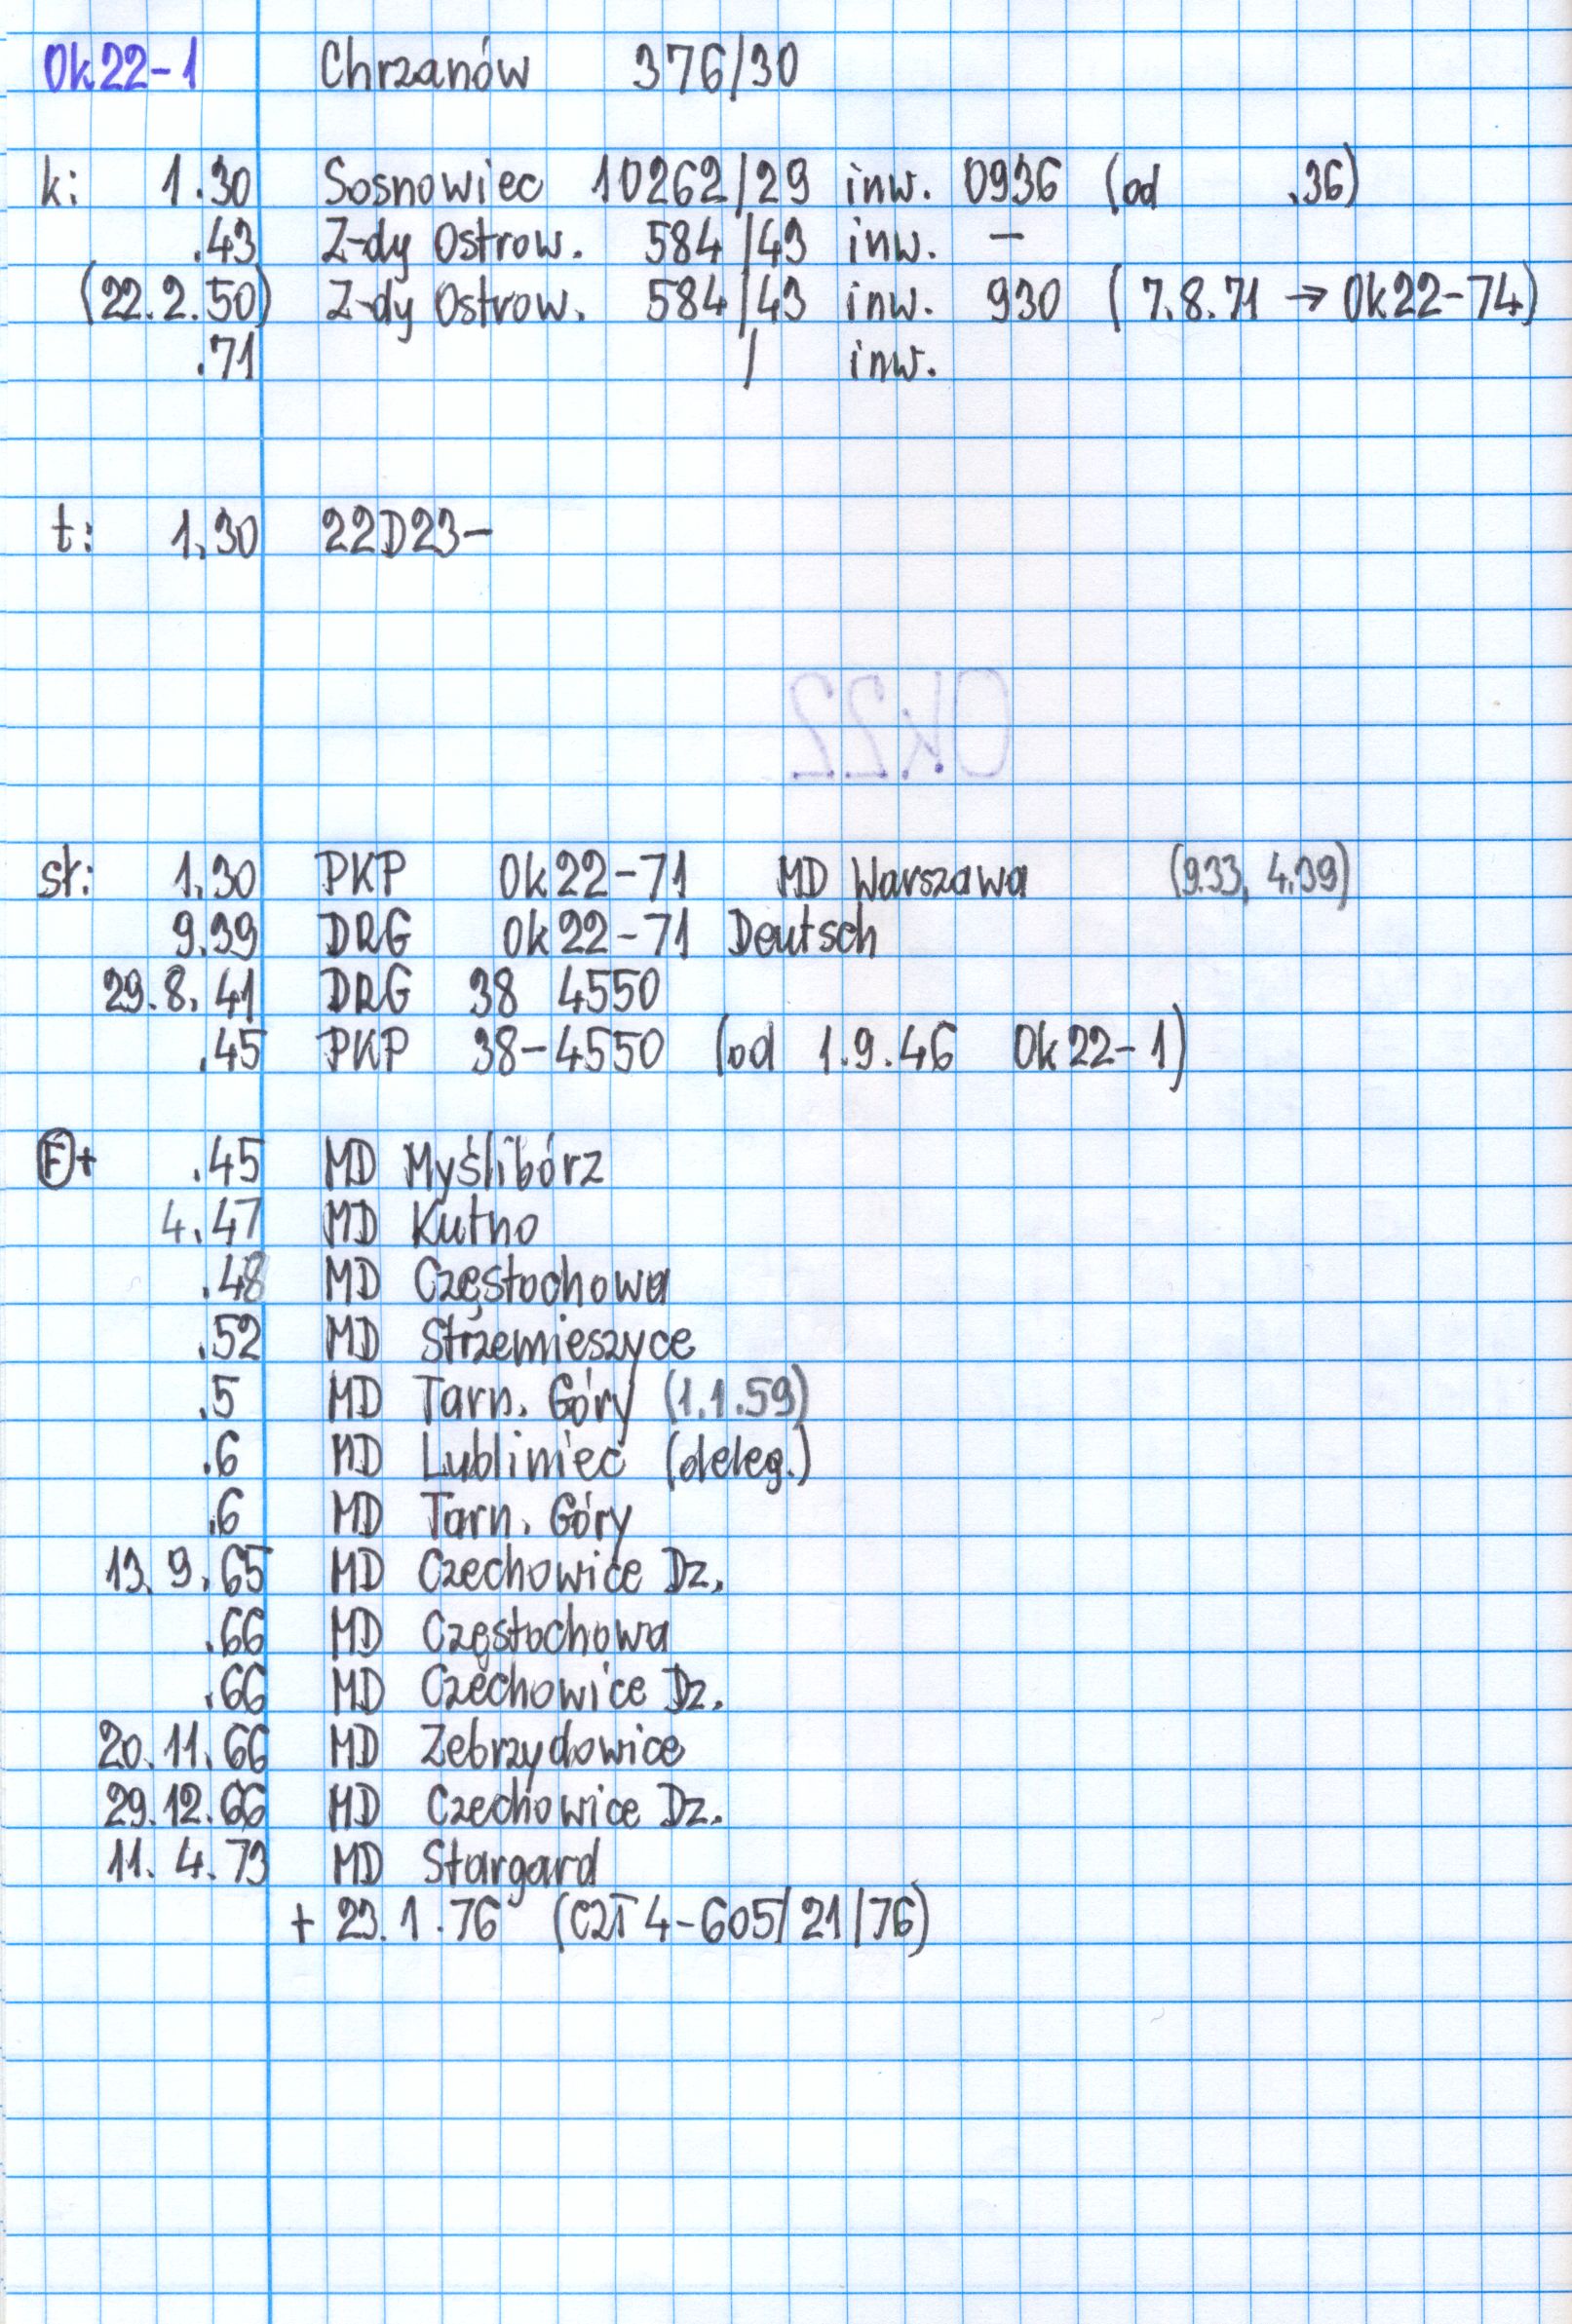 Ok22-1 Chrzanów 376/30
k: 1.30 Sosnowiec 10262/29 inw. 0936 (od .36)
.43 Z-dy Ostrow. 584/43 inw. -
(22.2.50) Z-dy Ostrow. 584/43 inw. 930 (7.8.71 → Ok22-74)
.71 / inw.
t: 1.30 22D23-
Ok22
st: 1.30 PKP Ok22-71 MD Warszawa (9.33, 4.39)
9.39 DRG Ok22-71 Deutsch
29.8.41 DRG 38 4550
.45 PKP 38-4550 (od 1.9.46 Ok22-1)
Ⓕ+ .45 MD Myślibórz
4.47 MD Kutno
.48 MD Częstochowa
.52 MD Strzemieszyce
.5 MD Tarn. Góry (1.1.59)
.6 MD Lubliniec (deleg.)
.6 MD Tarn. Góry
13.9.65 MD Czechowice Dz.
.66 MD Częstochowa
.66 MD Czechowice Dz.
20.11.66 MD Zebrzydowice
29.12.66 MD Czechowice Dz.
11.4.73 MD Stargard
+ 23.1.76 (CZT4-605/21/76)